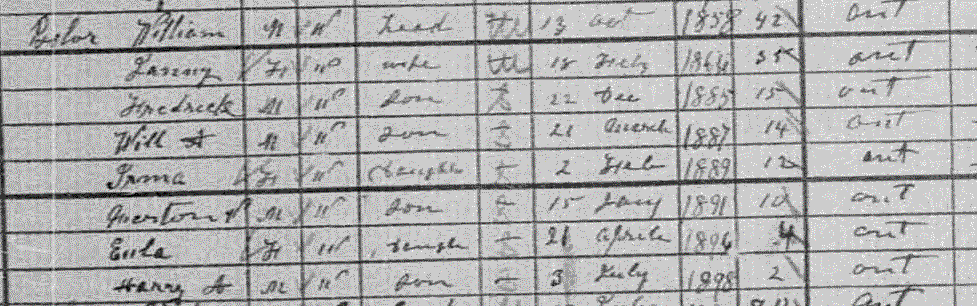 William M W Head M 13 Oct 1858 42 Ont
Fanny F W wife M 18 Feb 35 ont
Fredrick M W son S 22 Dec 1885 15 ont
Will A M W son S 21 March 1887 14 ont
Irma F W Daugh S 2 Feb 1889 12 ont
M W son S 15 Jany 1891 10 ont
Eula F W Daugh S 21 Aprile 4 ont
Harry A M W son S 3 July 1898 2 ont